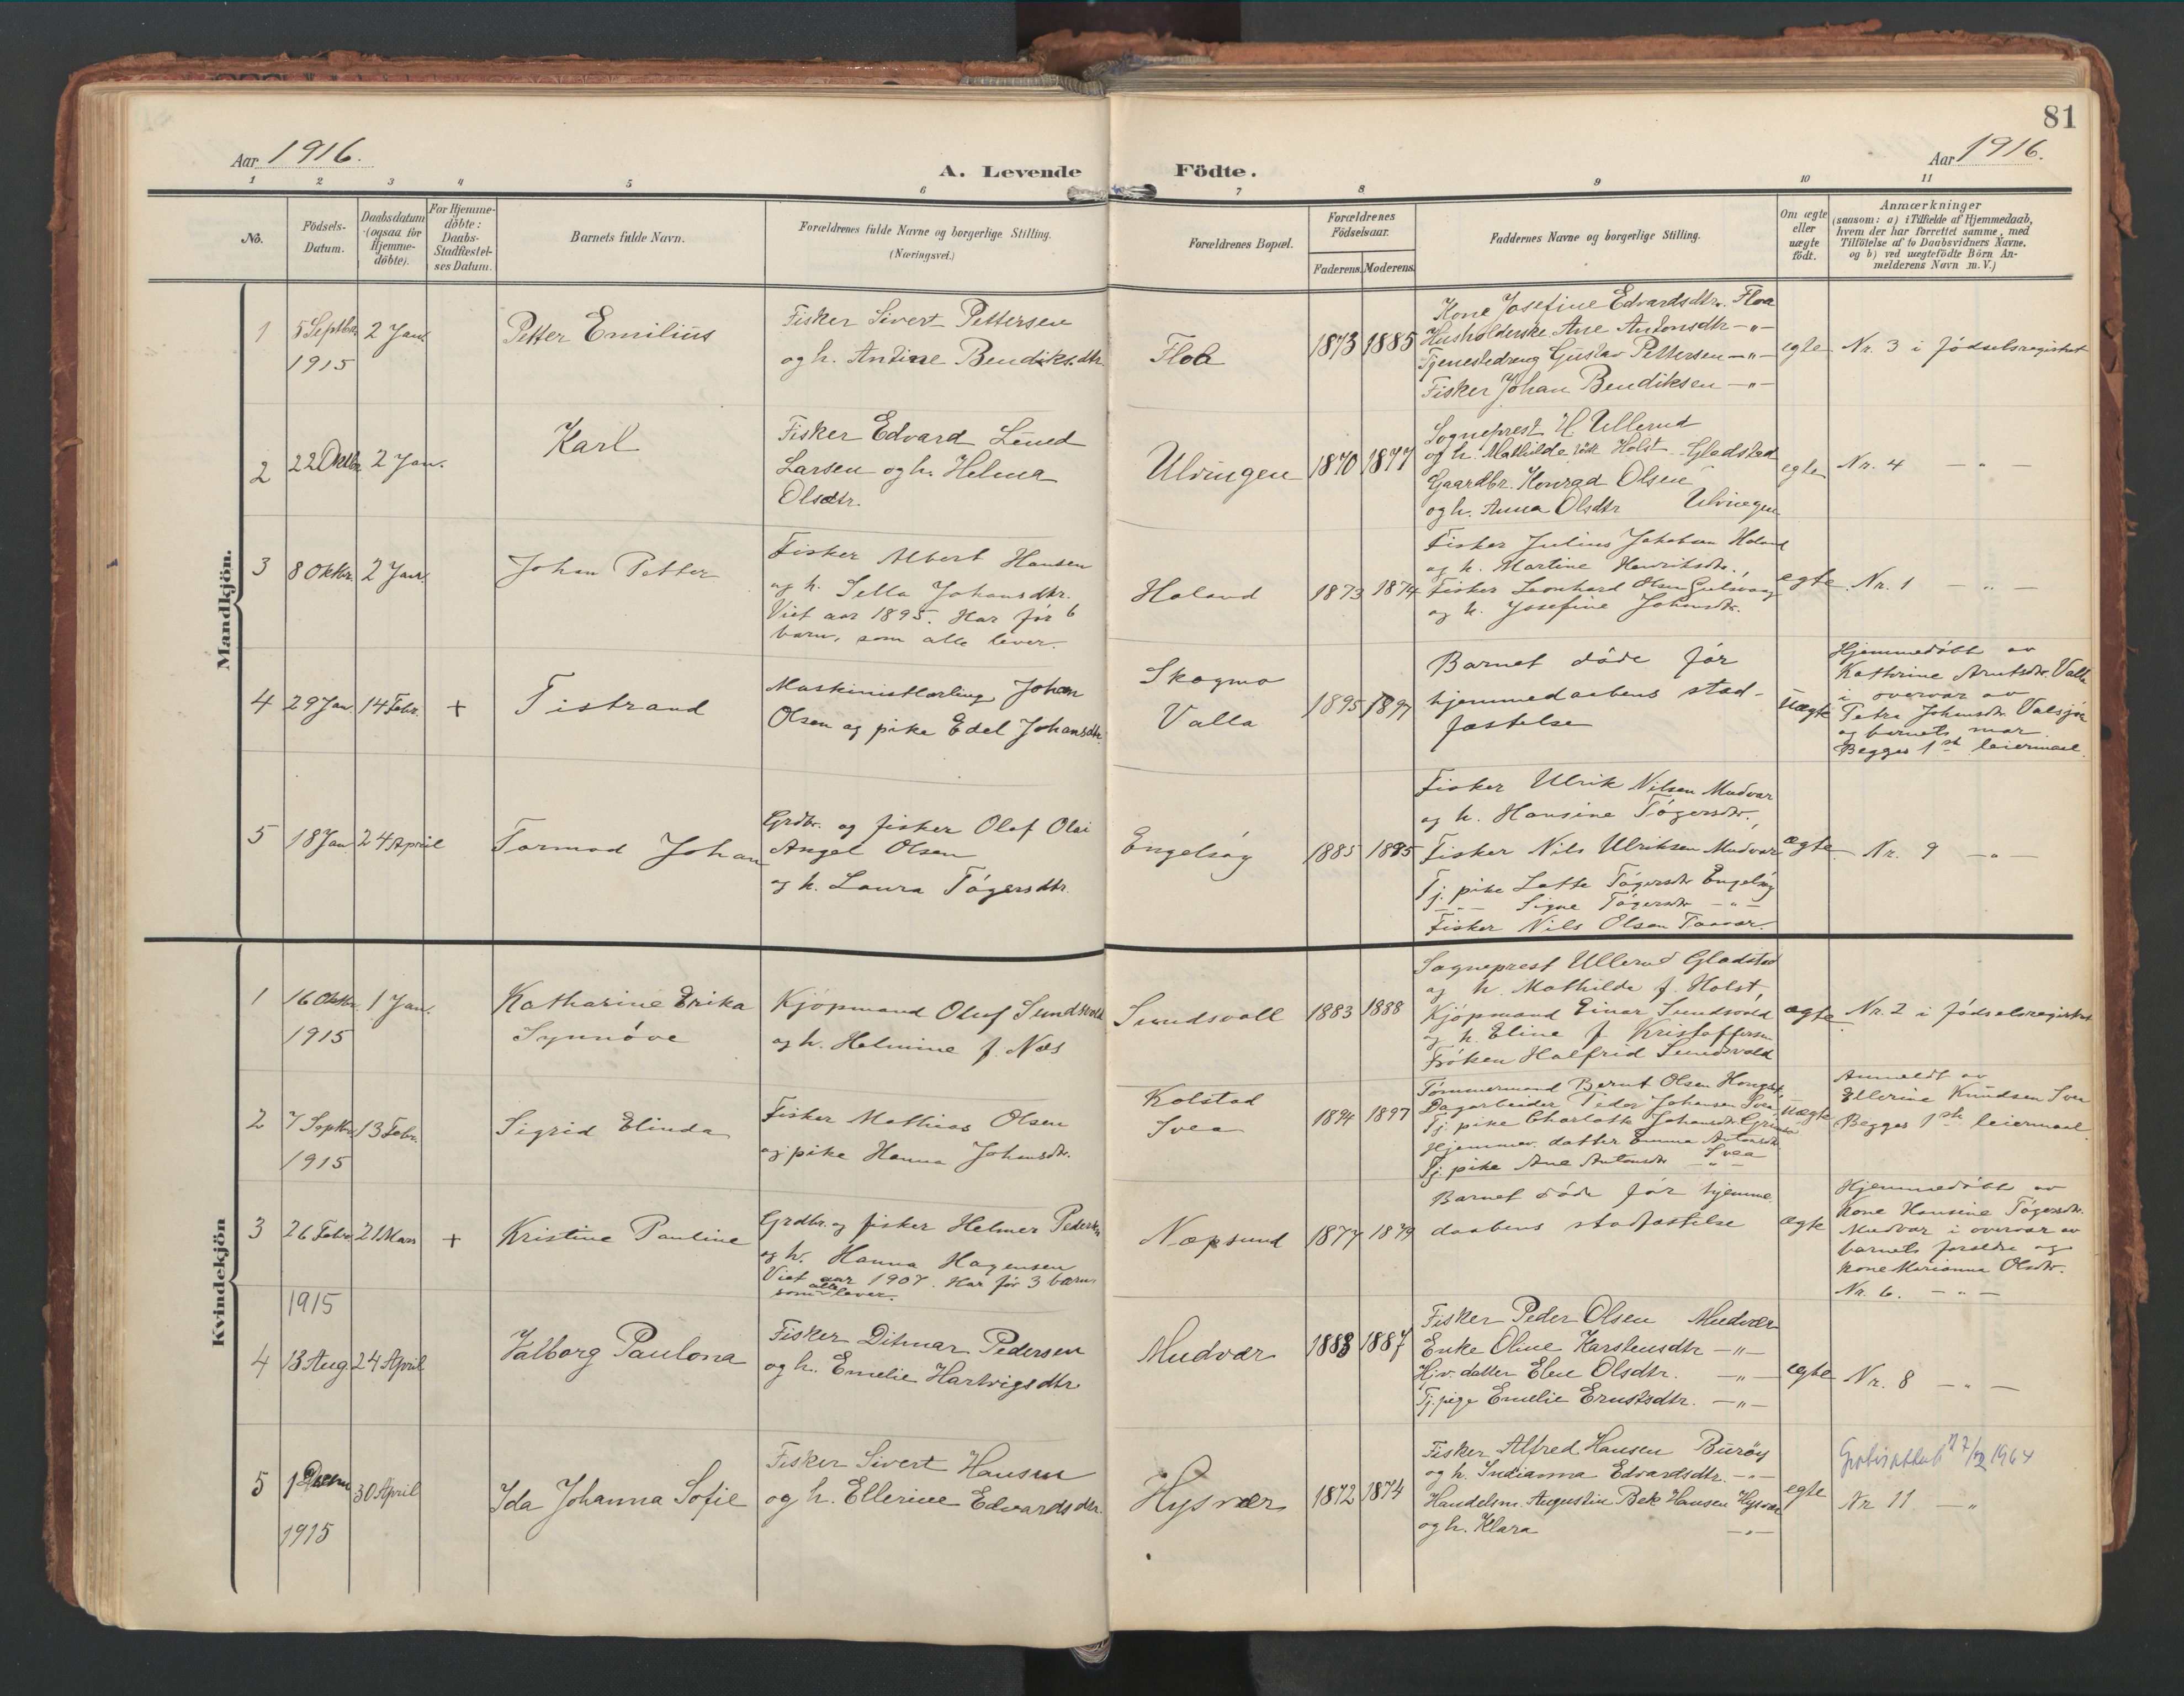 81
Aar 1916.
A. Levende Födte.
Aar 1916.
1 2 3 4 5 6 7 8 9 10 11
No.
Födsels-
Datum.
Daabsdatum
(ogsaa for
Hjemme-
döbte).
For Hjemme-
döbte:
Daabs-
Stadfæstel-
ses Datum.
Barnets fulde Navn.
Forældrenes fulde Navne og borgerlige Stilling.
(Næringsvei.)
Forældrenes Bopæl.
Forældrenes
Födselsaar.
Faderens. Moderens.
Faddernes Navne og borgerlige Stilling.
Om ægte
eller
uægte
födt.
Anmærkninger
(saasom: a) i Tilfælde af Hjemmedaab,
hvem der har forrettet samme, med
Tilföielse af to Daabsvidners Navne.
og b) ved uægtefödte Börn An-
melderens Navn m. V.)
Mandkjön.
1
5 Septbr.
1915
2 Jan.
Petter Emilius
Fisker Sivert Pettersen
og h. Antine Bendiksdtr.
Floa
1873 1885
Kone Josefine Edvardsdtr. Floa
Husholderske Ane Antonsdtr -"-
Tjenestedreng Gustav Pettersen -"-
Fisker Johan Bendiksen -"-
egte
Nr. 3 i födselsregistret
2
22 Oktbr.
2 Jan.
Karl
Fisker Edvard Lened
Larsen og h. Helma
Olsdtr.
Ulvingen
1870 1877
Sogneprest H. Ullerud
og h. Mathilde födt Holst Gladstad
Gaardbr. Konrad Olsen
og h. Anna Olsdtr Ulvingen
egte
Nr. 4 - " -
3
8 Oktbr.
2 Jan.
Johan Petter
Fisker Albert Hansen
og h. Sella Johansdtr.
Viet aar 1895. Har för 6
barn, som alle lever.
Holand
1873 1874
Fisker Julius Jakobsen Holand
og h. Martine Henriksdtr.,
Fisker Leonhard Olsen
og h. Josefine Johansdtr.
egte
Nr. 1 - " -
4
29 Jan.
14 Febr.
+
Tistrand
Maskinistlærling Johan
Olsen og pike Edel Johansdtr.
Skogmo
Valla
1895 1897
Barnet döde för
hjemmedaabens stad-
fæstelse
uægte
Hjemmedöbt av
Kathrine Arntsdtr. Valla
i overvær av
Petra Johansdtr. Valsjöen
og barnets mor.
Begges 1ste leiermaal.
5
18 Jan.
24 April
Tormod Johan
Grdbr. og fisker Olaf Olai
Angel Olsen
og h. Laura Tögersdtr.
Engelsöy
1885 1885
Fisker Ulrik Nilsen Mudvær
og h. Hansine Tögersdtr.,
Fisker Nils Ulriksen Mudvær
Tj. pike Lotte Tögersdtr. Engelsöy
Tj. -"- Signe Tögersdtr -"-
Fisker Nils Olsen Taavær.
ægte
Nr. 9 - " -
Kvindekjön
1
16 Oktbr.
1915
1 Jan.
Katharine Erika
Synnöve
Kjöpmand Oluf Sundsvold
og h. Helmine f. Næs
Sundsvoll
1883 1888
Sogneprest Ullerud Gladstad
og h. Mathilde f. Holst,
Kjöpmand Einar Sundsvold
og h. Eline f. Kristoffersen
Fröken Halfrid Sundsvold
ægte
Nr. 2 i födselsregistret
2
7 Septbr.
1915
13 Febr.
Sigrid Elinda
Fisker Mathias Olsen
og pike Hanna Johansdtr.
Kolstad
Svea
1894 1897
Tömmermand Bernt Olsen
Dagarbeider Peder Johansen Svea,
Tj. pike Charlotte Johansdtr.
Hjemmev. datter Emma Antonsdtr.
Tj. pike Ane Antonsdtr Svea
uægte
Anmeldt av
Ellerine Knudsen Svea
Begges 1ste leiermaal.
3
26 Febr.
21 Mars
+
Kristine Pauline
Grdbr. og fisker Helmer Pedersen
og h. Hanna Hagensen
Viet aar 1907. Har för 3 barn
som alle lever.
Næpsund
1877 1879
Barnet döde för hjemme-
daabens stadfæstelse
ægte
Hjemmedöbt av
Kone Hansine Tögersdtr.
Mudvær i overvær av
barnets forældre og
kone Marianna Olsdtr.
Nr. 6. - " -
1915
4
13 Aug.
24 April
Valborg Paulona
Fisker Ditmar Pedersen
og h. Emelie Hartvigsdtr
Mudvær
1883 1887
Fisker Peder Olsen Mudvær
Enke Oline Karstensdtr -"-
Hjv. datter Elen Olsdtr. -"-
Tj. pige Emelie Ernstsdtr. -"-
egte
Nr. 8 - " -
5
1
1915
30 April
Ida Johanna Sofie
Fisker Sivert Hansen
og h. Ellerine Edvardsdtr.
Hysvær
1872 1874
Fisker Alfred Hansen Buröy
og h. Indianna Edvardsdtr. -"-
Handelsm. Augustin Bek Hansen Hysvær
og h. Klara -"-
egte
1964
Nr 11 - "